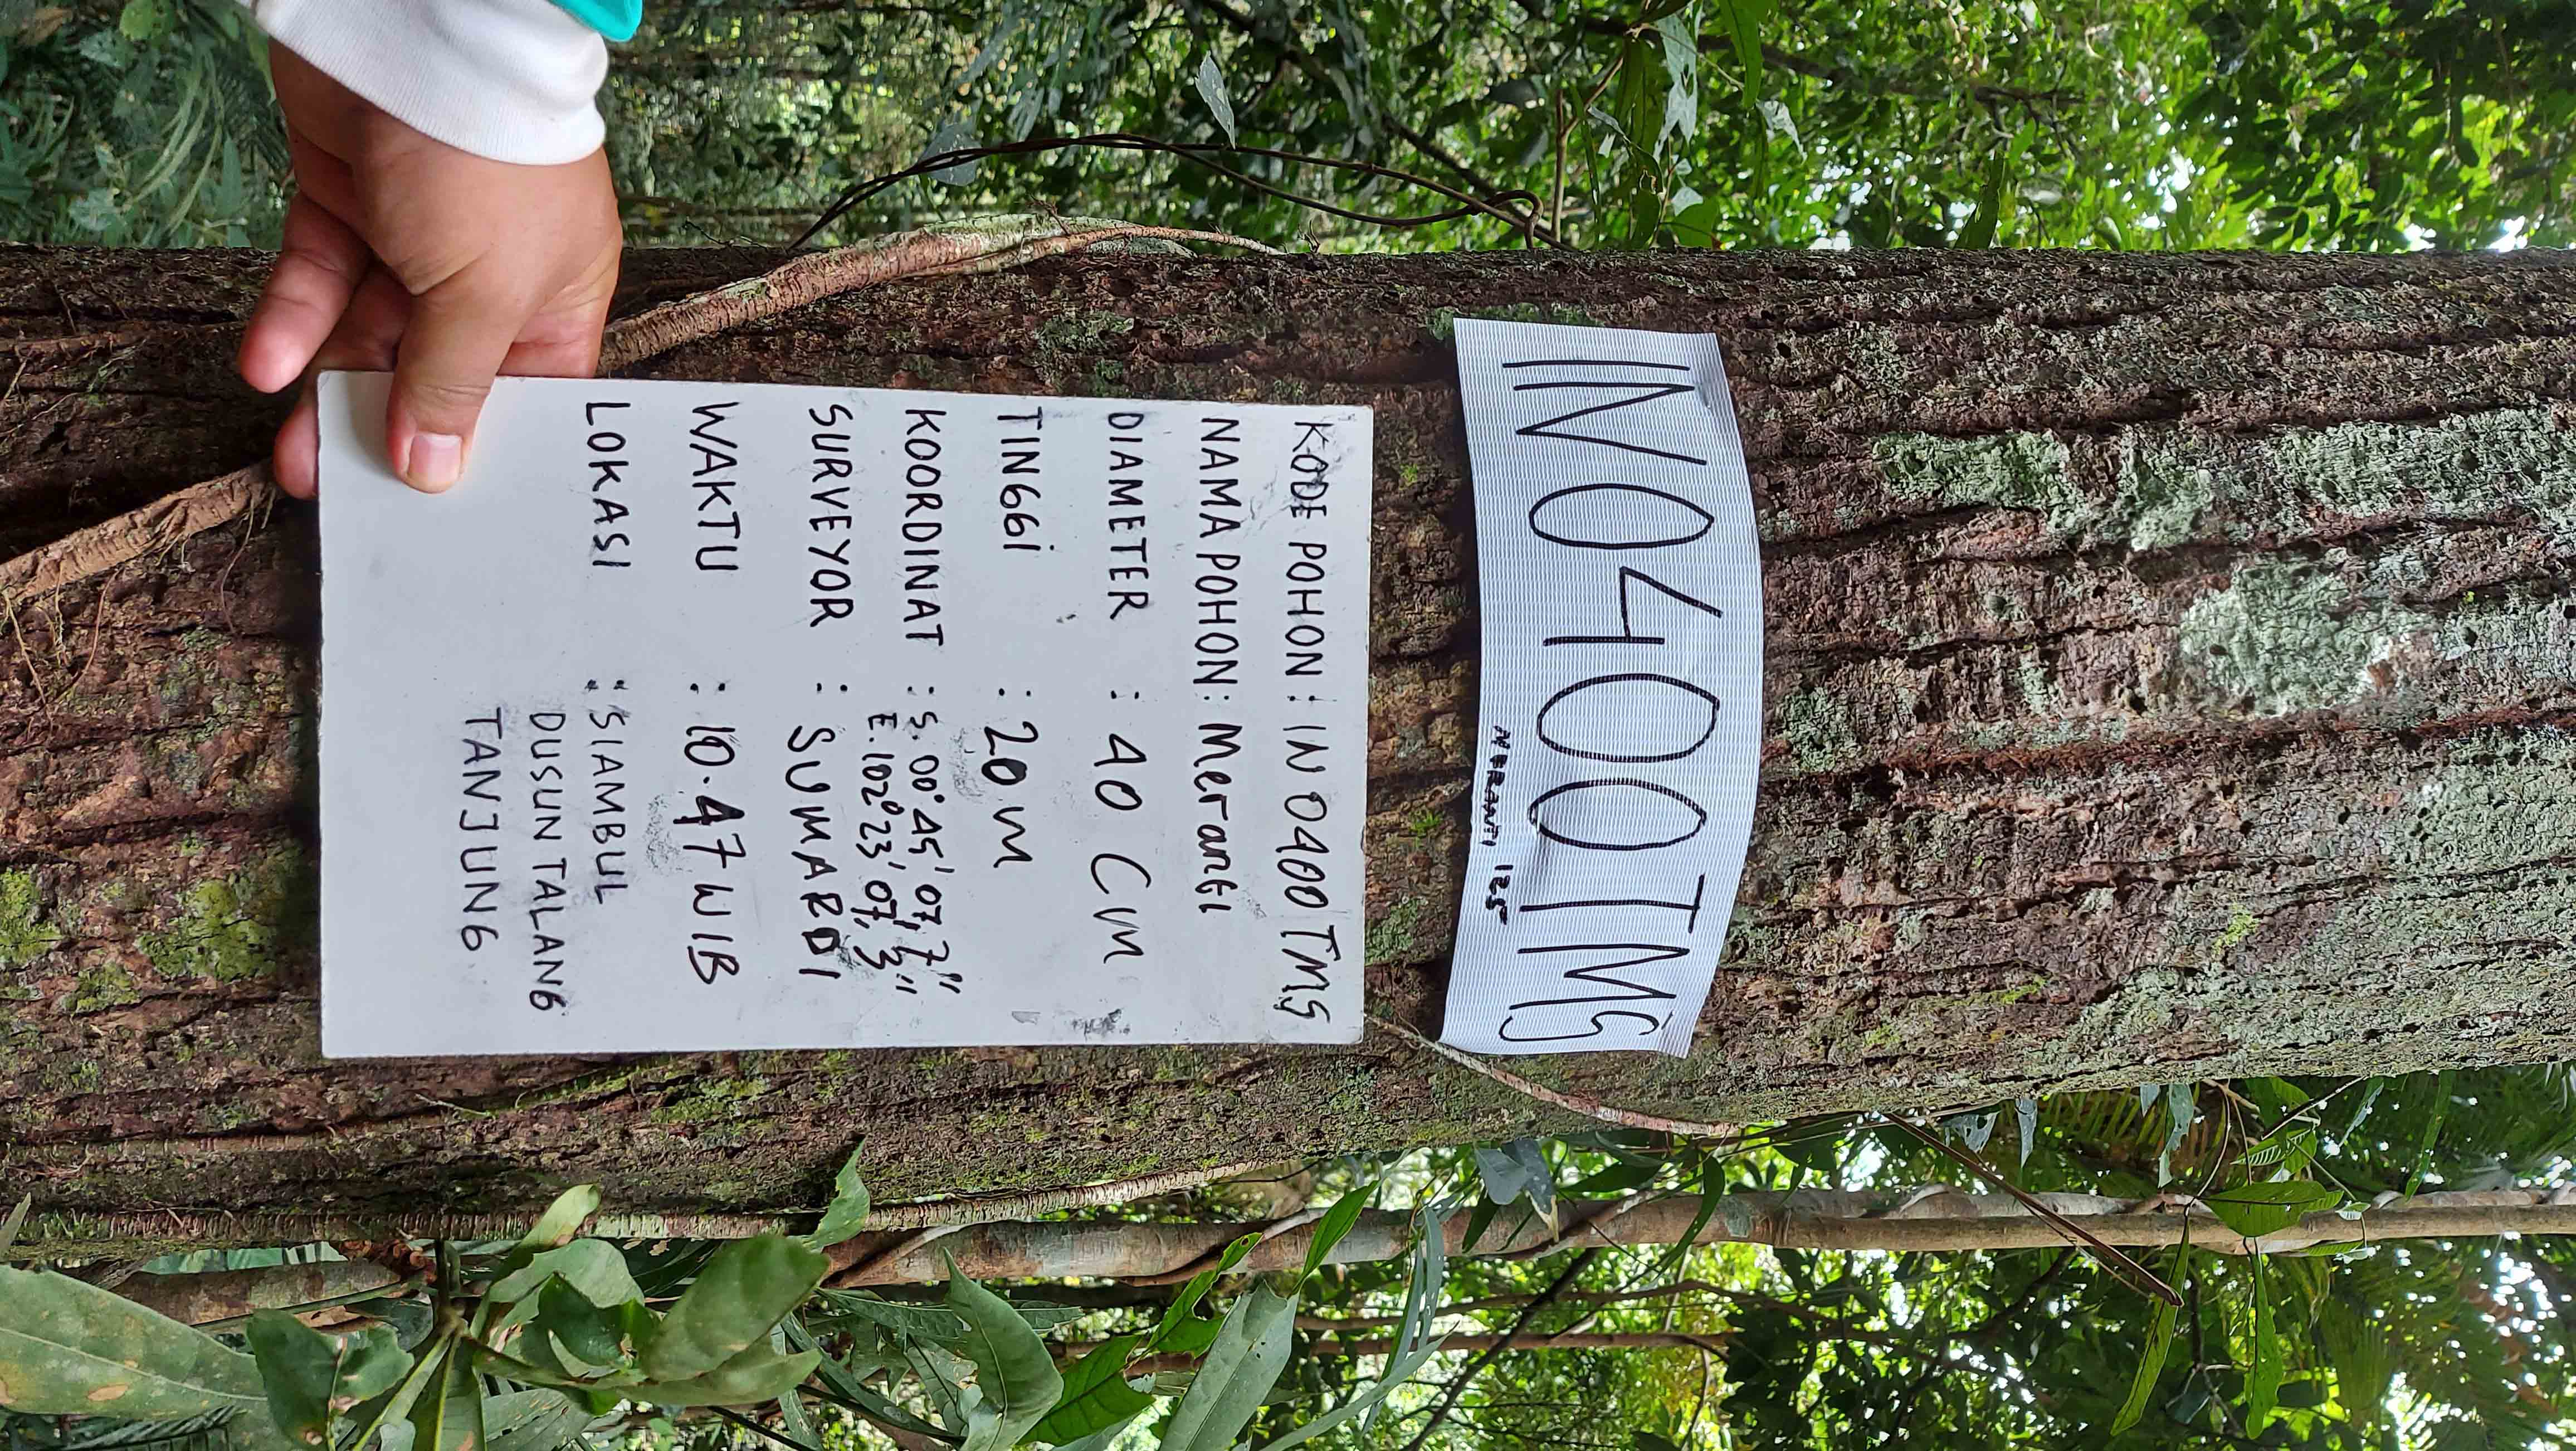 IN0400TMS
MERANTI 125
KODE POHON : IN 0400 TMS
NAMA POHON : Meranti
DIAMETER : 40 CM
TINGGI : 20 M
KOORDINAT : S. 00° 45' 07,7"
E. 102° 23' 07,3"
SURVEYOR : SUMARDI
WAKTU : 10.47 WIB
LOKASI : SIAMBUL
DUSUN TALANG
TANJUNG